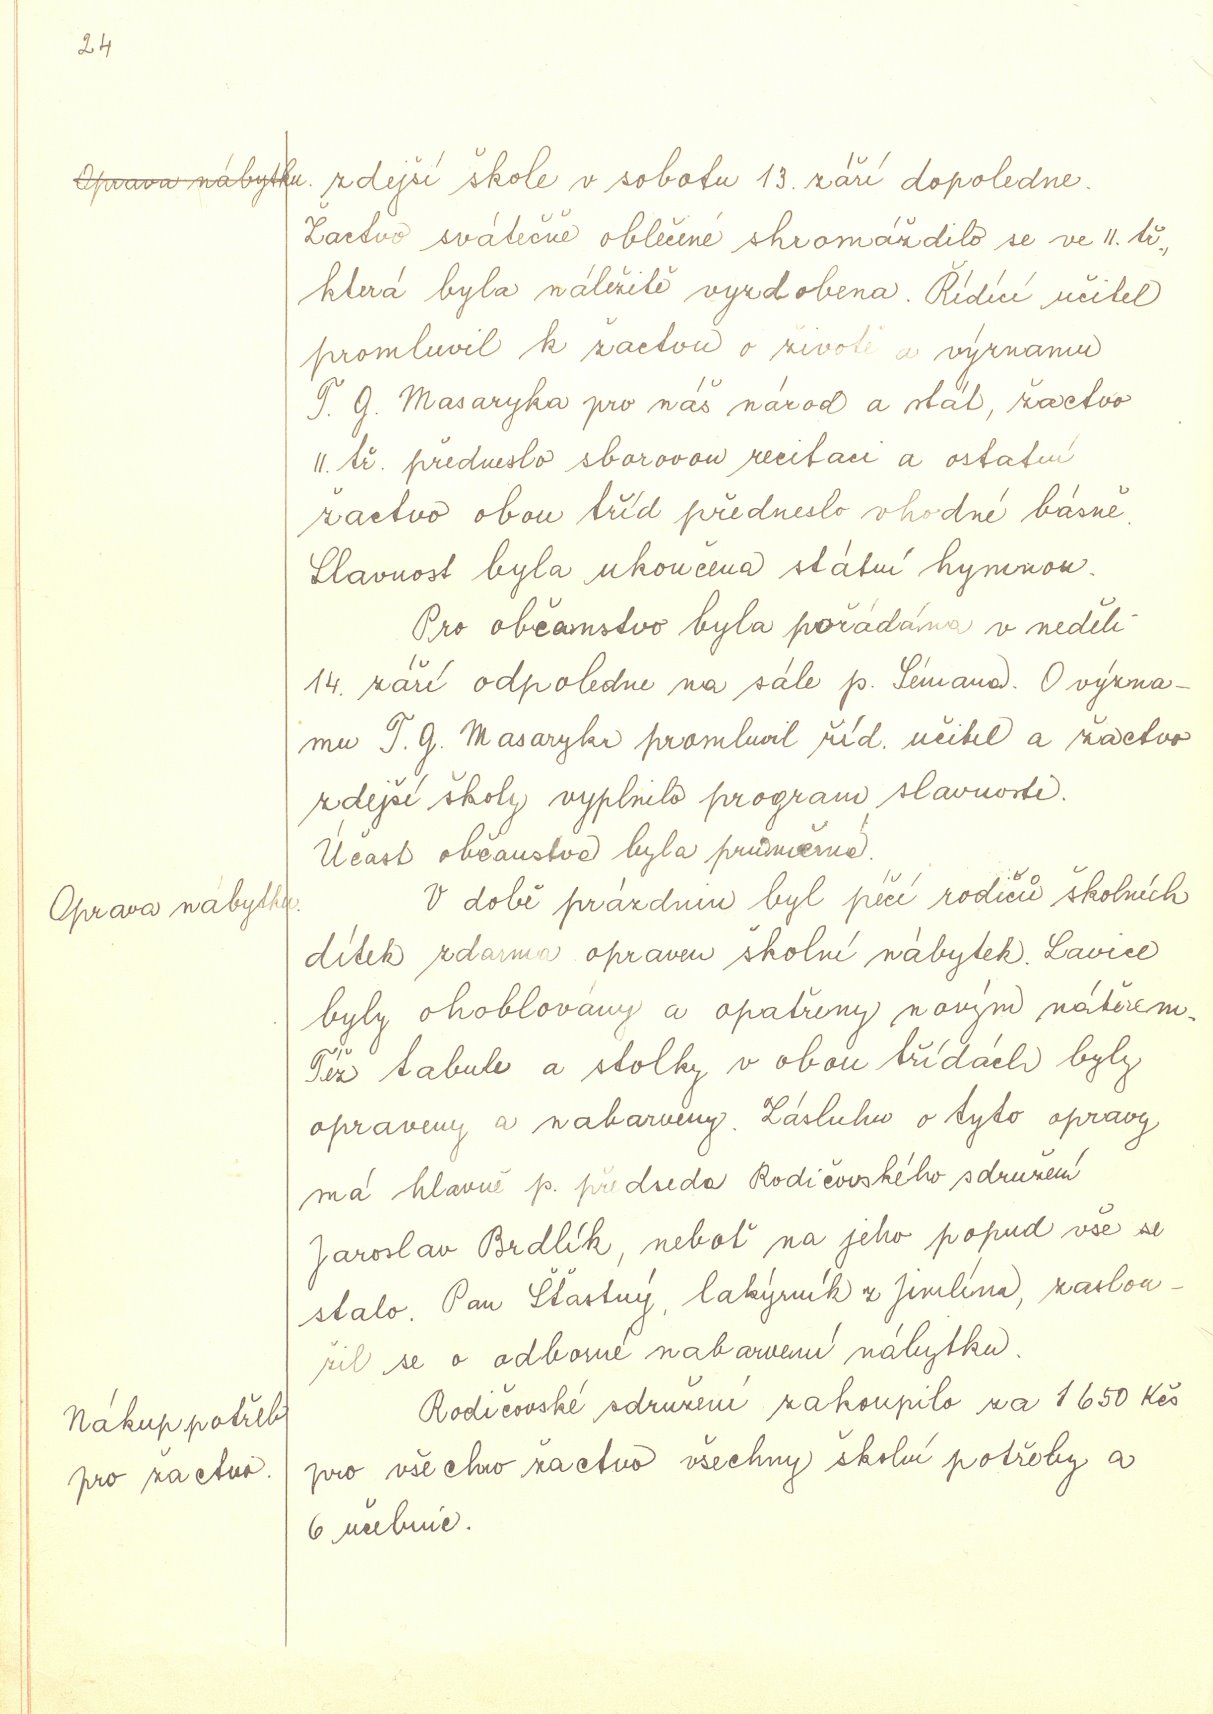 24
Oprava nábytku. zdejší škole v sobotu 13. září dopoledne.
Žactvo svátečně oblečené shromáždilo se ve II. tř.,
která byla náležitě vyzdobena. Řídící učitel
promluvil k žactvu o životě a významu
T. G. Masaryka pro náš národ a stát, žactvo
II. tř. předneslo sborovou recitaci a ostatní
žactvo obou tříd předneslo vhodné básně.
Slavnost byla ukončena státní hymnou.
Pro občanstvo byla pořádána v neděli
14. září odpoledne na sále p. Sémana. O význa-
mu T. G. Masaryka promluvil říd. učitel a žactvo
zdejší školy vyplnilo program slavnosti.
Účast občanstva byla průměrná.
Oprava nábytku. V době prázdnin byl péčí rodičů školních
dítek zdarma opraven školní nábytek. Lavice
byly ohoblovány a opatřeny novým nátěrem.
Též tabule a stolky v obou třídách byly
opraveny a nabarveny. Zásluhu o tyto opravy
má hlavně p. předseda Rodičovského sdružení
Jaroslav Brdlík, neboť na jeho popud vše se
stalo. Pan Šťastný, lakýrník z Jimlína, zaslou-
žil se o odborné nabarvení nábytku.
Nákup potřeb Rodičovské sdružení zakoupilo za 1650 Kčs
pro žactvo. pro všechno žactvo všechny školní potřeby a
6 učebnic.